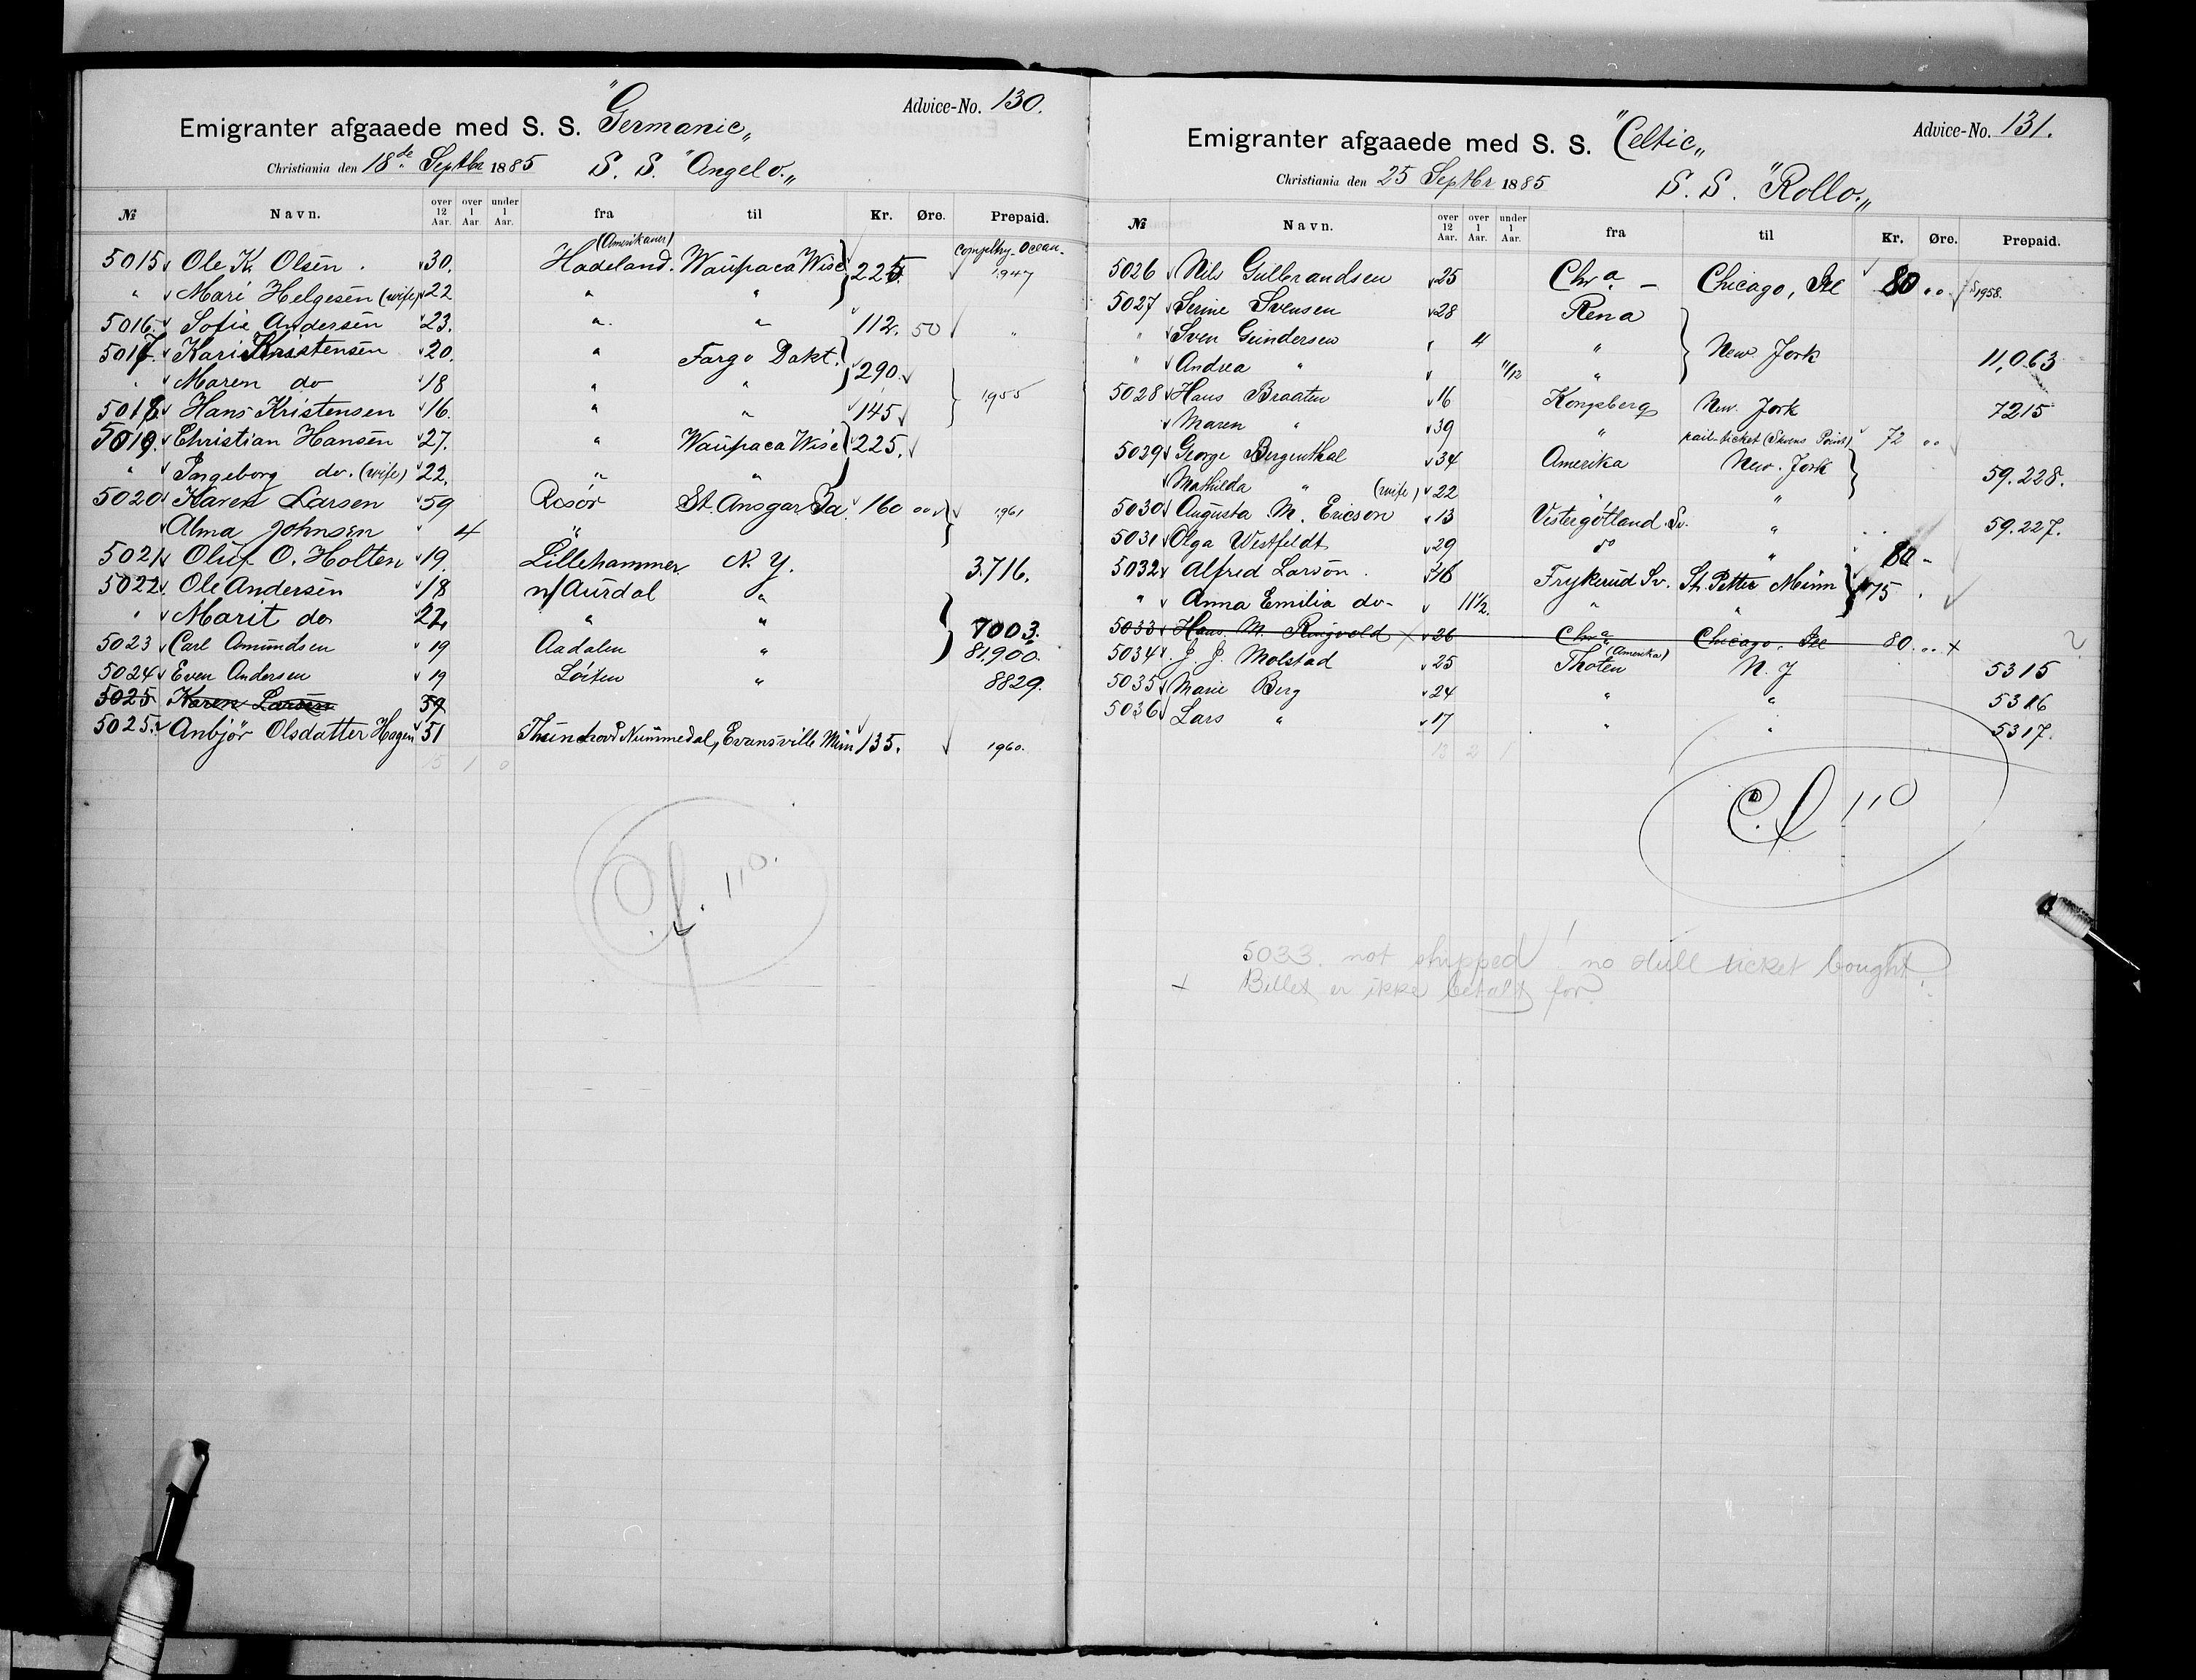 Advice-No. 130.
Emigranter afgaaede med S. S. "Germanic„
Christiania den 18de Septbr 1885 S. S. "Angelo.„
№ Navn. over 12 Aar. over 1 Aar. under 1 Aar. fra til Kr. Øre. Prepaid.
5015 Ole K. Olsen. 30. (Amerikaner) Hadeland. Waupaca Wisc 225. 1947
" Mari Helgesen (wife) 22 " "
5016. Sofie Andersen 23. " " 112. 50 "
5017 Kari Kristensen 20. " Fargo Dakt. 290.
" Maren do 18 " " 1955
5018 Hans Kristensen 16. " " 145
5019. Christian Hansen 27. " Waupaca Wisc 225.
" Ingeborg do. (wife) 22. " "
5020 Karen Larsen 59 Risör St. Ansgar Ia. 160 00 1961
Alma Johnsen 4 "
5021 Oluf O. Holten 19. Lillehammer N. Y. 3716.
5022 Ole Andersen 18 n/Aurdal "
" Marit do 22, " " 7003.
5023 Carl Amundsen 19 Aadalen " 81,900.
5024 Even Andersen 19 Löiten " 8829.
5025 Karen Larsen 59
5025. Anbjør Olsdatter Hagen 51 Nummedal, Evansville Min 135. 1960.
15 1 0
Cf. 110.
Advice-No. 131.
Emigranter afgaaede med S. S. "Celtic„
Christiania den 25 Septbr 1885 S. S. "Rollo.„
№ Navn. over 12 Aar. over 1 Aar. under 1 Aar. fra til Kr. Øre. Prepaid.
5026 Nils Gulbrandsen 25 Chra. – Chicago, Ill 80 .. 1958.
5027 Serine Svensen 28 Rena
" Sven Gundersen 4 " New. York
" Andrea " 11/12 " 11,063
5028 Hans Braaten 16 Kongsberg New. York 7215
Maren " 39 " rail-ticket (Stevens Point) 72 ..
5029 George Bergenthal 34 Amerika New. York 59.228.
Mathilda " (wife) 22 "
5030 Augusta M. Ericson 13 Vestergötland Sv. " 59.227.
5031 Olga Westfeldt 29 do " 80 -
5032 Alfred Larson. 18 Frykerud Sv. St. Petter Minn 175
" Anna Emilia do- 11½. " "
5033 Hans. M. Ringvold 26 Chra Chicago. Ill 80 .. +
5034 J. J. Molstad 25 (Amerika) Thoten N. Y 5315
5035 Marie Berg 24 " " 5316
5036 Lars " 17 " " 5317.
13 2 1
Cf 110
5033. not shipped! no still ticket bought.
+ Billet er ikke betalt for